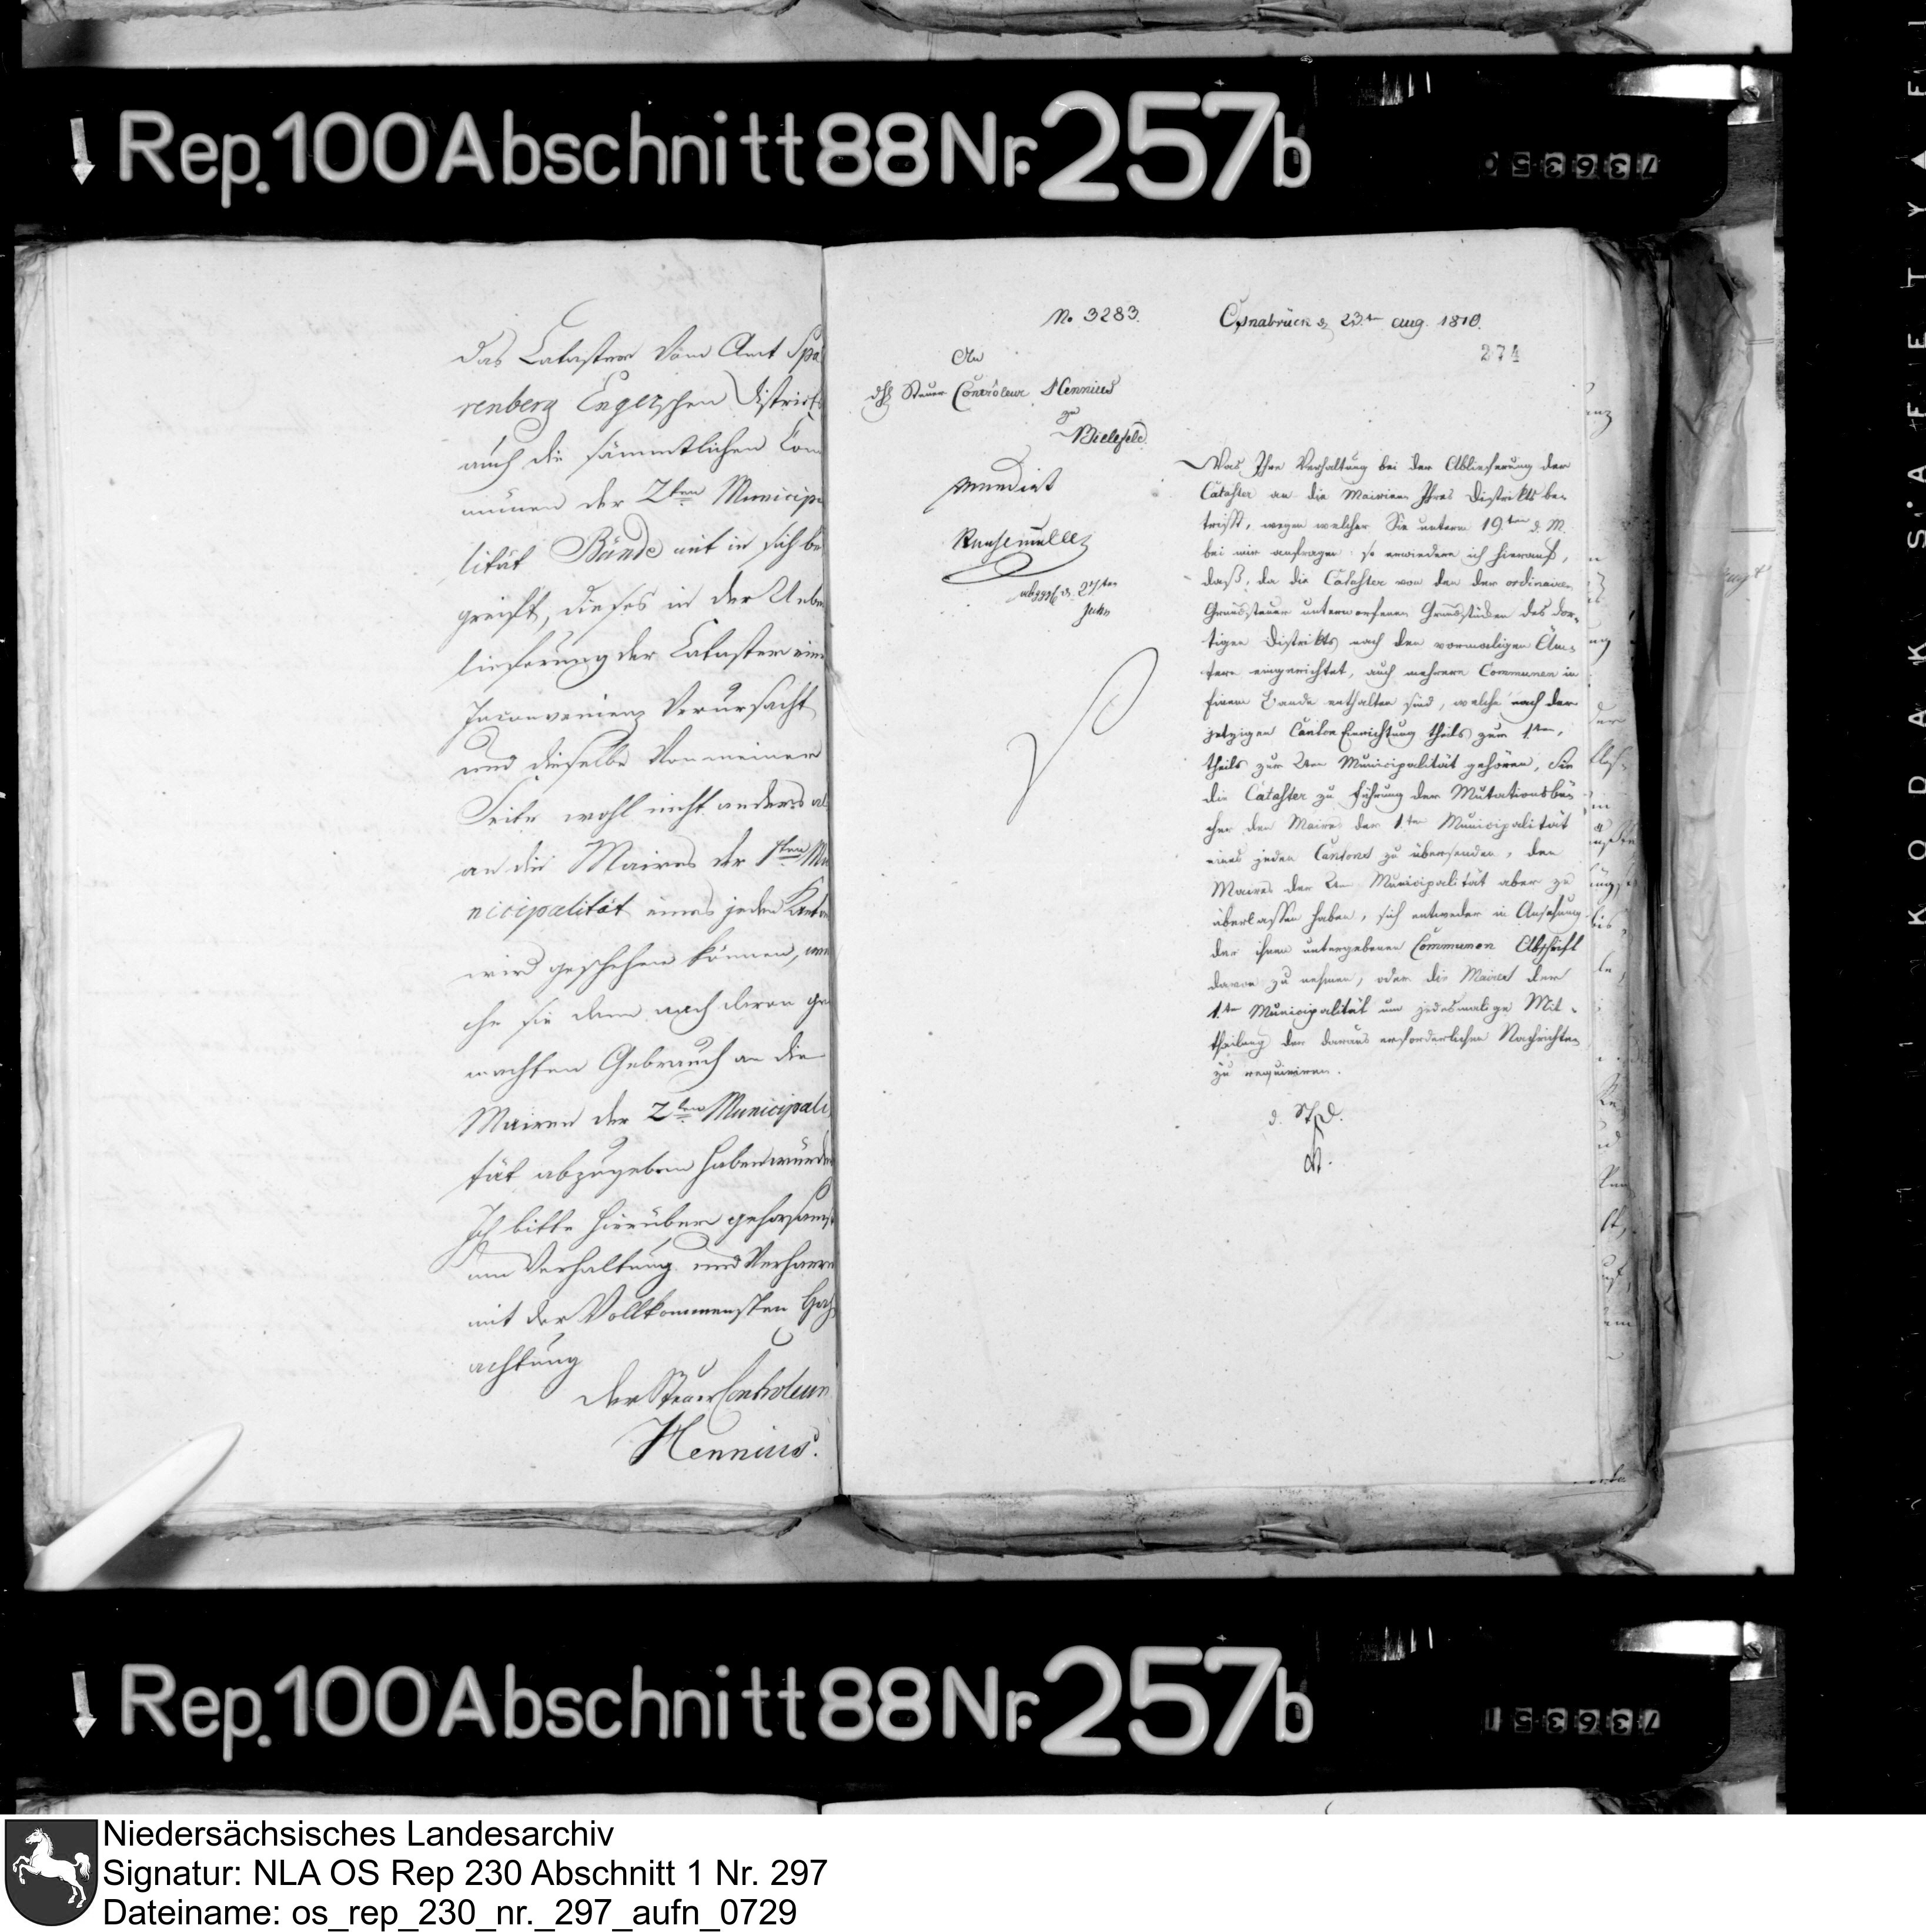 Rep. 100 Abschnitt 88 Nr. 257b
736350
das Cataster vom Amt Spa
renberg Engerschen Districts
auch die sämmtlichen Com
munen der 2ten Municipa
lität Bünde mit in sich be
greift, dieses in der Ueber
lieferung der Cataster eine
Inconvenienz verursacht
und dieselbe von meiner
Seite wohl nicht anders al
an die Maires der 1sten Mu
nicipalität eines jeden Canton
wird geschehen können, wel
che sie dann nach deren ge
machten Gebrauch an die
Mairen der 2ten Municipali
tät abzugeben haben würden
Ich bitte hierüber gehorsamst
um Verhaltung und Verharre
mit der Vollkommensten Hoch
achtung
der Steuer Controleur
Hennius.
No 3283.
Osnabrück d 23ten Aug. 1810.
274
An
den Steuer Controleur Hennius
zu
Bielefeld.
mundirt
abggb. d. 27ten
Was Ihre Verhaltung bei der Ablieferung der
Catahster an die Mairien Ihres Distrikts be-
trifft, wegen welcher Sie unterm 19ten d. M.
bei mir anfragen: so erwiedere ich hierauf,
daß, da die Catahster von den der ordinairen
Grundsteuer unterworfenen Grundstücken des dor-
tigen Distrikts nach den vormaligen Äm-
tern eingerichtet, auch mehrere Communen in
Einem Bande enthalten sind, welche nach der
jetzigen Canton Einrichtung theils zur 1ten,
theils zur 2ten Municipalität gehören, Sie
die Catahster zu Führung der Mutationsbü-
cher den Maires der 1ten Municipalität
eines jeden Cantons zu übersenden, den
Maires der 2ten Municipalität aber zu
überlassen haben, sich entweder in Ansehung
der ihnen untergebenen Communen Abschrift
davon zu nehmen, oder die Maires der
1ten Municipalität um jedesmalige Mit-
theilung der daraus erforderlichen Nachrichten
zu requiriren.
d. St. D.
Rep. 100 Abschnitt 88 Nr. 257b
736351
KODAK SAFETY
Niedersächsisches Landesarchiv
Signatur: NLA OS Rep 230 Abschnitt 1 Nr. 297
Dateiname: os_rep_230_nr._297_aufn_0729